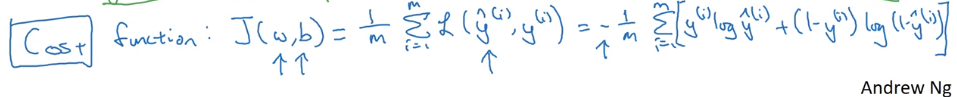 Cost function: J(w,b) = 1/m Σ_{i=1}^{m} L(ŷ^{(i)}, y^{(i)}) = - 1/m Σ_{i=1}^{m} [y^{(i)} log ŷ^{(i)} + (1-y^{(i)}) log(1-ŷ^{(i)})]
Andrew Ng